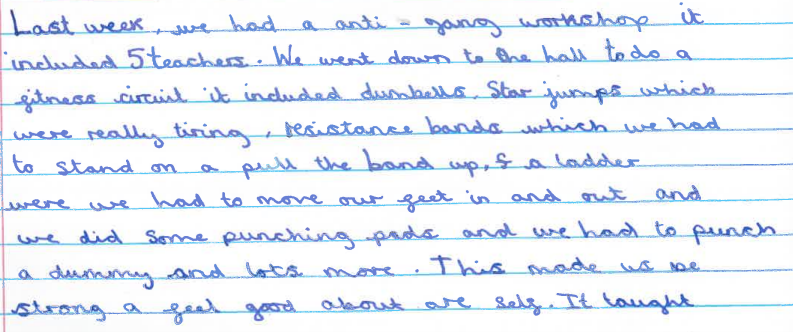 Last week, we had a anti-gang workshop it
included 5 teachers. We went down to the hall to do a
fitness circuit it included dumbells, Star jumps which
were really tiring, resistance bands which we had
to stand on a pull the band up, & a ladder
were we had to move our feet in and out and
we did some punching pads and we had to punch
a dummy and lots more. This made us be
strong a feel good about are self. It taught